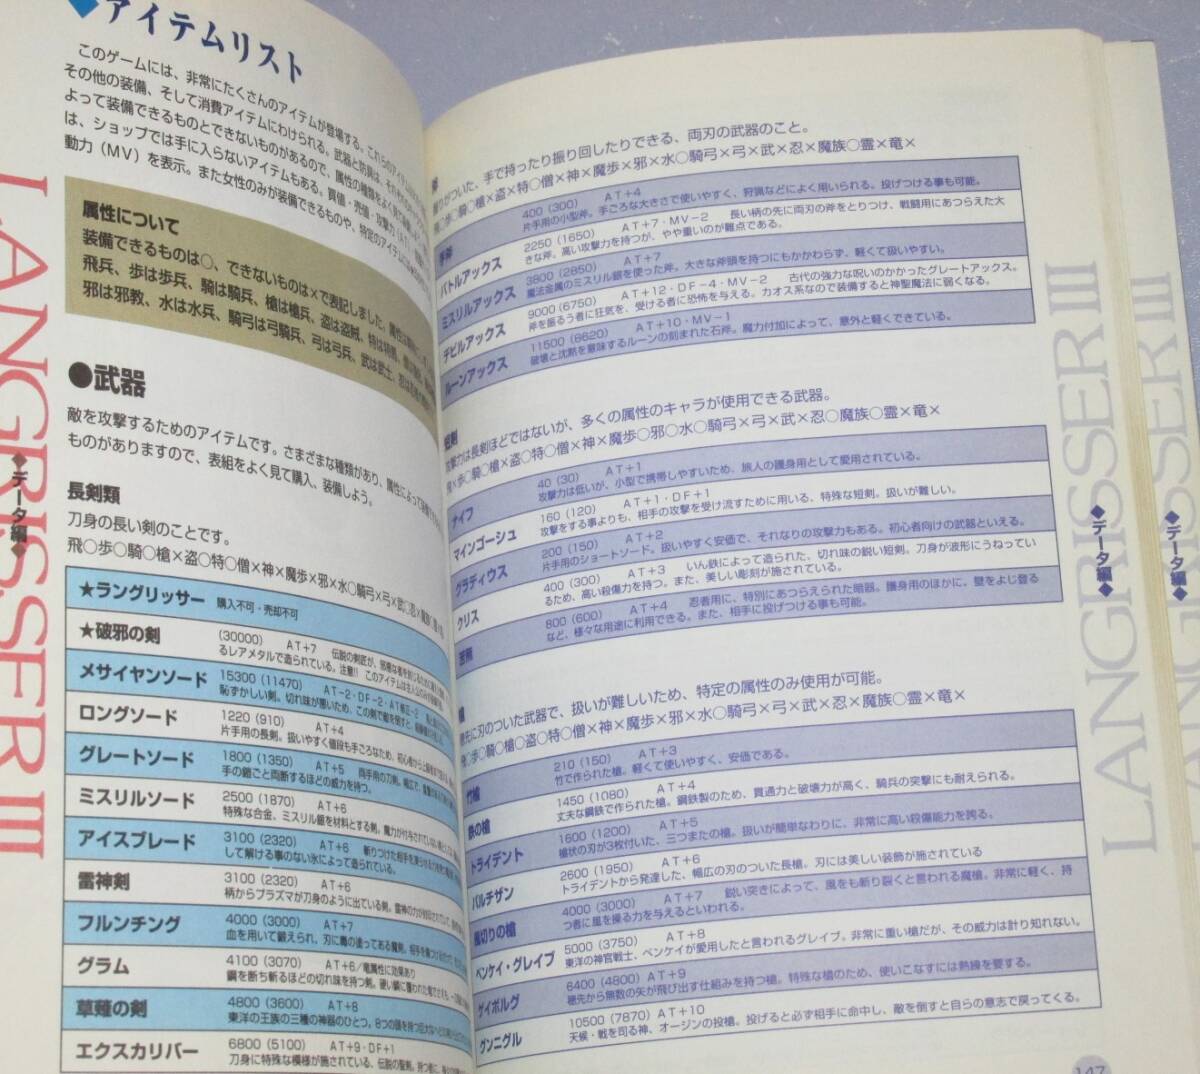 ◆アイテムリスト
このゲームには、非常にたくさんのアイテムが登場する。これらのアイテムは
その他の装備、そして消費アイテムにわけられる。武器と防具は、それぞれ
よって装備できるものとできないものがあるので、属性の種類をよく見て
は、ショップでは手に入らないアイテムもある。買値・売値・攻撃力（AT）
動力（MV）を表示。また女性のみが装備できるものや、特定のアイテム
属性について
装備できるものは○、できないものは×で表記しました。属性
飛兵、歩は歩兵、騎は騎兵、槍は槍兵、盗は盗賊、特は特殊
邪は邪教、水は水兵、騎弓は弓騎兵、弓は弓兵、武は武士、忍は
●武器
敵を攻撃するためのアイテムです。さまざまな種類があり、属性によって装備
ものがありますので、表組をよく見て購入、装備しよう。
長剣類
刀身の長い剣のことです。
飛○歩○騎○槍×盗○特○僧×神×魔歩×邪×水○騎弓×弓×武○忍×魔族
★ラングリッサー 購入不可・売却不可
★破邪の剣 (30000) AT+7 伝説の剣匠が、
るレアメタルで造られている。注意!! このアイテムは
メサイヤンソード 15300 (11470) AT-2・DF-2・AT
恥ずかしい剣。切れ味が悪いため、この剣で敵を倒すと、
ロングソード 1220 (910) AT+4
片手用の長剣。扱いやすく値段も手ごろなため、初心者から
グレートソード 1800 (1350) AT+5 両手用の刀剣。幅広で、
手の鎧ごと両断するほどの威力を持つ。
ミスリルソード 2500 (1870) AT+6
特殊な合金、ミスリル銀を材料とする剣。魔力が付与されて
アイスブレード 3100 (2320) AT+6 斬りつけた相手を凍らせる
して解ける事のない氷によって造られている。
雷神剣 3100 (2320) AT+6
柄からプラズマが刀身のように出ている剣。雷神の力が
フルンチング 4000 (3000) AT+7
血を用いて鍛えられ、刃に毒の塗ってある魔剣。相手を
グラム 4100 (3070) AT+6/竜属性に効果あり
鋼を断ち斬るほどの切れ味を持つ剣。硬い鱗に覆われた竜でさえも、
草薙の剣 4800 (3600) AT+8
東洋の王族の三種の神器のひとつ。8つの頭を持つ巨大な
エクスカリバー 6800 (5100) AT+9・DF+1
刀身に特殊な模様が施されている、伝説の聖剣。持つ者に、
LANGRISSER III
◆データ編◆
斧
がついた、手で持ったり振り回したりできる、両刃の武器のこと。
飛○歩○騎○槍×盗×特○僧×神×魔歩×邪×水○騎弓×弓×武×忍×魔族○霊×竜×
手斧 400 (300) AT+4
片手用の小型斧。手ごろな大きさで使いやすく、狩猟などによく用いられる。投げつける事も可能。
バトルアックス 2250 (1650) AT+7・MV-2 長い柄の先に両刃の斧をとりつけ、戦闘用にあつらえた大
きな斧。高い攻撃力を持つが、やや重いのが難点である。
ミスリルアックス 3800 (2850) AT+7
魔法金属のミスリル銀を使った斧。大きな斧頭を持つにもかかわらず、軽くて扱いやすい。
デビルアックス 9000 (6750) AT+12・DF-4・MV-2 古代の強力な呪いのかかったグレートアックス。
斧を振るう者に狂気を、受ける者に恐怖を与える。カオス系なので装備すると神聖魔法に弱くなる。
ルーンアックス 11500 (8620) AT+10・MV-1
破壊と沈黙を意味するルーンの刻まれた石斧。魔力付加によって、意外と軽くできている。
短剣
攻撃力は長剣ほどではないが、多くの属性のキャラが使用できる武器。
飛×歩○騎○槍×盗○特○僧×神×魔歩○邪○水○騎弓×弓×武×忍○魔族○霊×竜×
ナイフ 40 (30) AT+1
攻撃力は低いが、小型で携帯しやすいため、旅人の護身用として愛用されている。
マインゴーシュ 160 (120) AT+1・DF+1
攻撃をする事よりも、相手の攻撃を受け流すために用いる、特殊な短剣。扱いが難しい。
グラディウス 200 (150) AT+2
片手用のショートソード。扱いやすく安価で、それなりの攻撃力もある。初心者向けの武器といえる。
クリス 400 (300) AT+3 いん鉄によって造られた、切れ味の鋭い短剣。刀身が波形にうねってい
るため、高い殺傷力を持つ。また、美しい彫刻が施されている。
苦無 800 (600) AT+4 忍者用に、特別にあつらえられた暗器。護身用のほかに、壁をよじ登る
など、様々な用途に利用できる。また、相手に投げつける事も可能。
槍
先に刃のついた武器で、扱いが難しいため、特定の属性のみ使用が可能。
飛○歩○騎○槍○盗×特○僧×神×魔歩×邪×水○騎弓×弓×武×忍×魔族○霊×竜×
竹槍 210 (150) AT+3
竹で作られた槍。軽くて使いやすく、安価である。
鉄の槍 1450 (1080) AT+4
丈夫な鋼鉄で作られた槍。鋼鉄製のため、貫通力と破壊力が高く、騎兵の突撃にも耐えられる。
トライデント 1600 (1200) AT+5
槍状の刃が3枚付いた、三つまたの槍。扱いが簡単なわりに、非常に高い殺傷能力を誇る。
パルチザン 2600 (1950) AT+6
トライデントから発達した、幅広の刃のついた長槍。刃には美しい装飾が施されている
風切りの槍 4000 (3000) AT+7 鋭い突きによって、風をも斬り裂くと言われる魔槍。非常に軽く、持
つ者に風を操る力を与えるといわれる。
ベンケイ・グレイブ 5000 (3750) AT+8
東洋の神官戦士、ベンケイが愛用したと言われるグレイブ。非常に重い槍だが、その威力は計り知れない。
ゲイボルグ 6400 (4800) AT+9
穂先から無数の矢が飛び出す仕組みを持つ槍。特殊な槍のため、使いこなすには熟練を要する。
グンニグル 10500 (7870) AT+10
天候・戦を司る神、オージンの投槍。投げると必ず相手に命中し、敵を倒すと自らの意志で戻ってくる。
LANGRISSER III
◆データ編◆
147
◆データ編◆